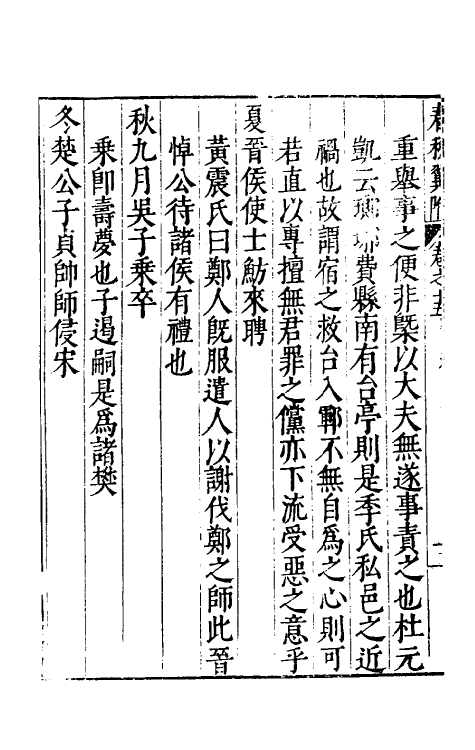 重舉事之便非槩以大夫無遂事責之也杜元
凱云瑯琊費縣南有台亭則是季氏私邑之近
禍也故謂宿之救台入鄆不無自為之心則可
若直以專擅無君罪之儻亦下流受惡之意乎
夏晉侯使士魴來聘
黃震氏曰鄭人既服遣人以謝伐鄭之師此晉
悼公待諸侯有禮也
秋九月吳子乘卒
乘卽壽夢也子遏嗣是為諸樊
冬楚公子貞帥師侵宋